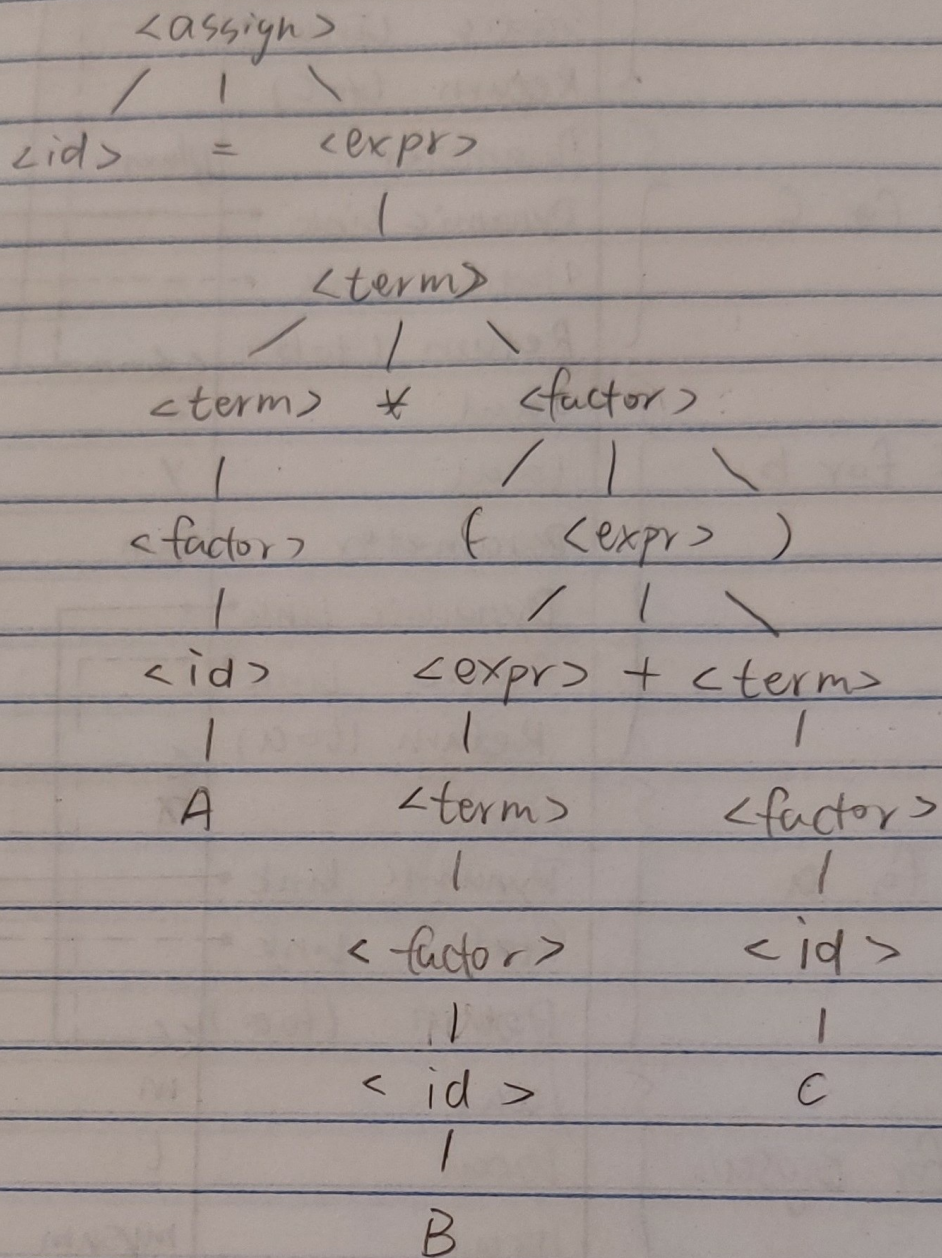 <assign>
/ | \
<id> = <expr>
|
<term>
/ | \
<term> * <factor>
| / | \
<factor> ( <expr> )
| / | \
<id> <expr> + <term>
| | |
A <term> <factor>
| |
<factor> <id>
| |
<id> C
|
B